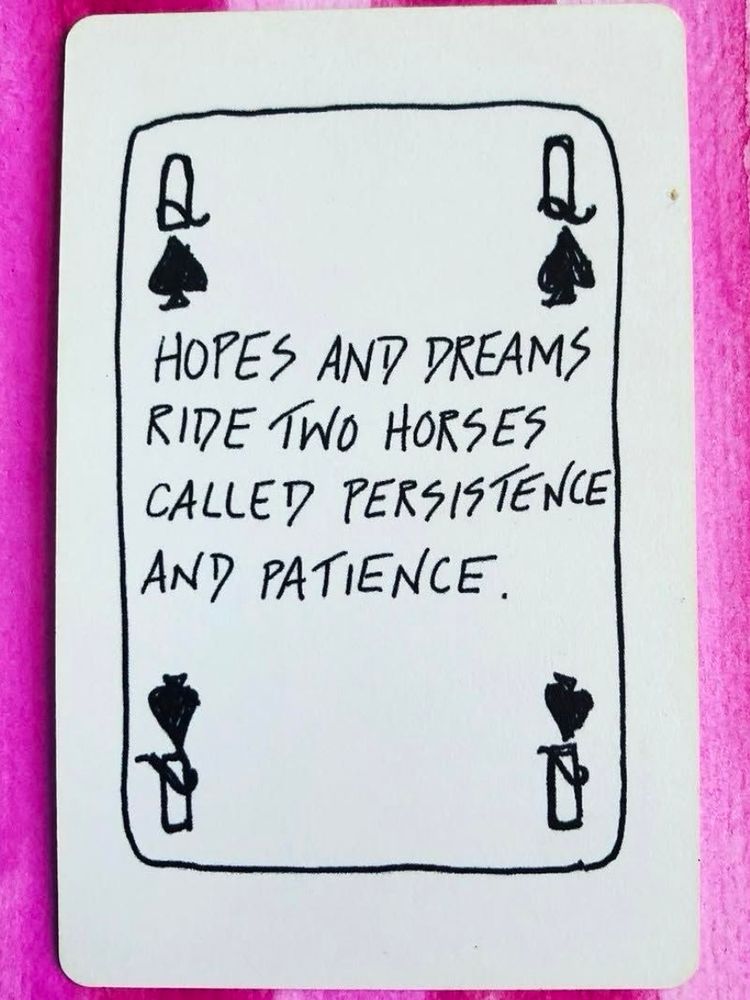 Q Q
HOPES AND DREAMS
RIDE TWO HORSES
CALLED PERSISTENCE
AND PATIENCE.
Q Q